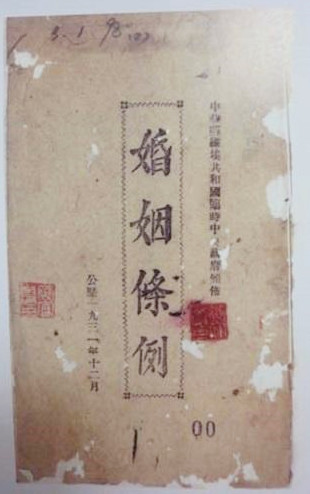 中華蘇維埃共和國臨時中央政府頒佈
婚姻條例
公曆一九三一年十二月
00